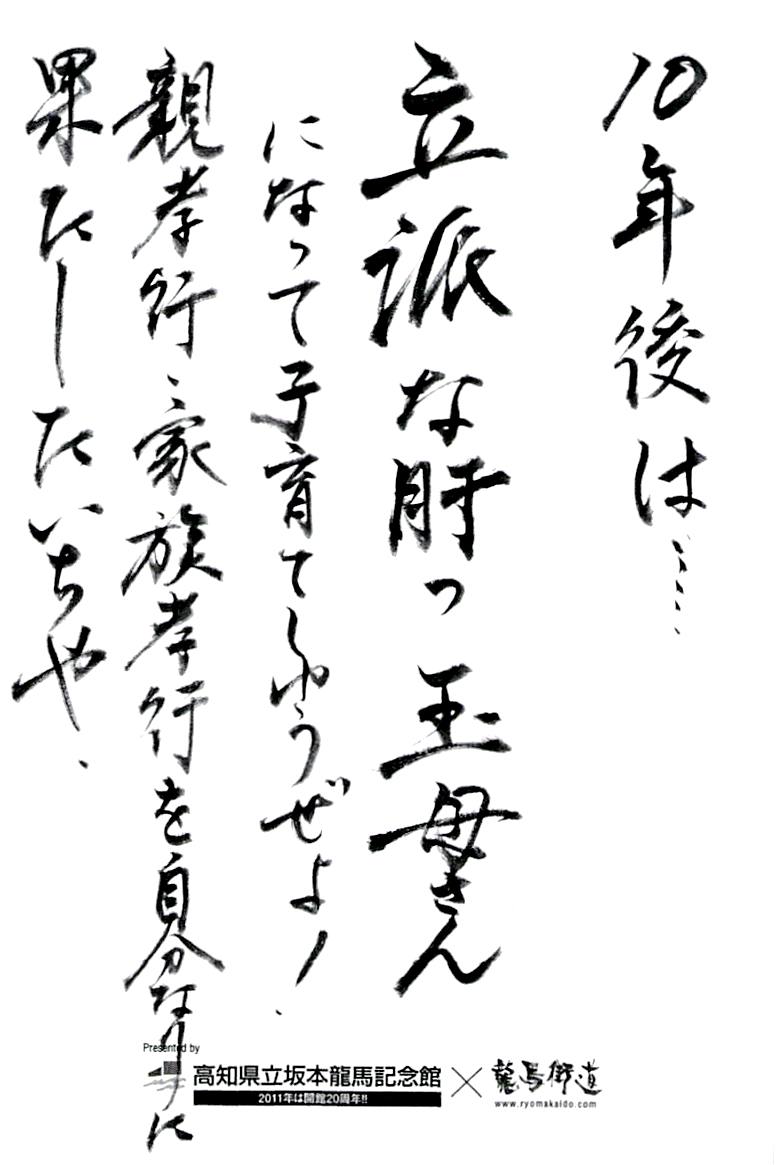 10年後は……
立派な肝っ玉母さん
になって子育てしゆうぜよ！
親孝行、家族孝行を自分なりに
果たしたいちや、
Presented by
高知県立坂本龍馬記念館
2011年は開館20周年!!
×
龍馬街道
www.ryomakaido.com